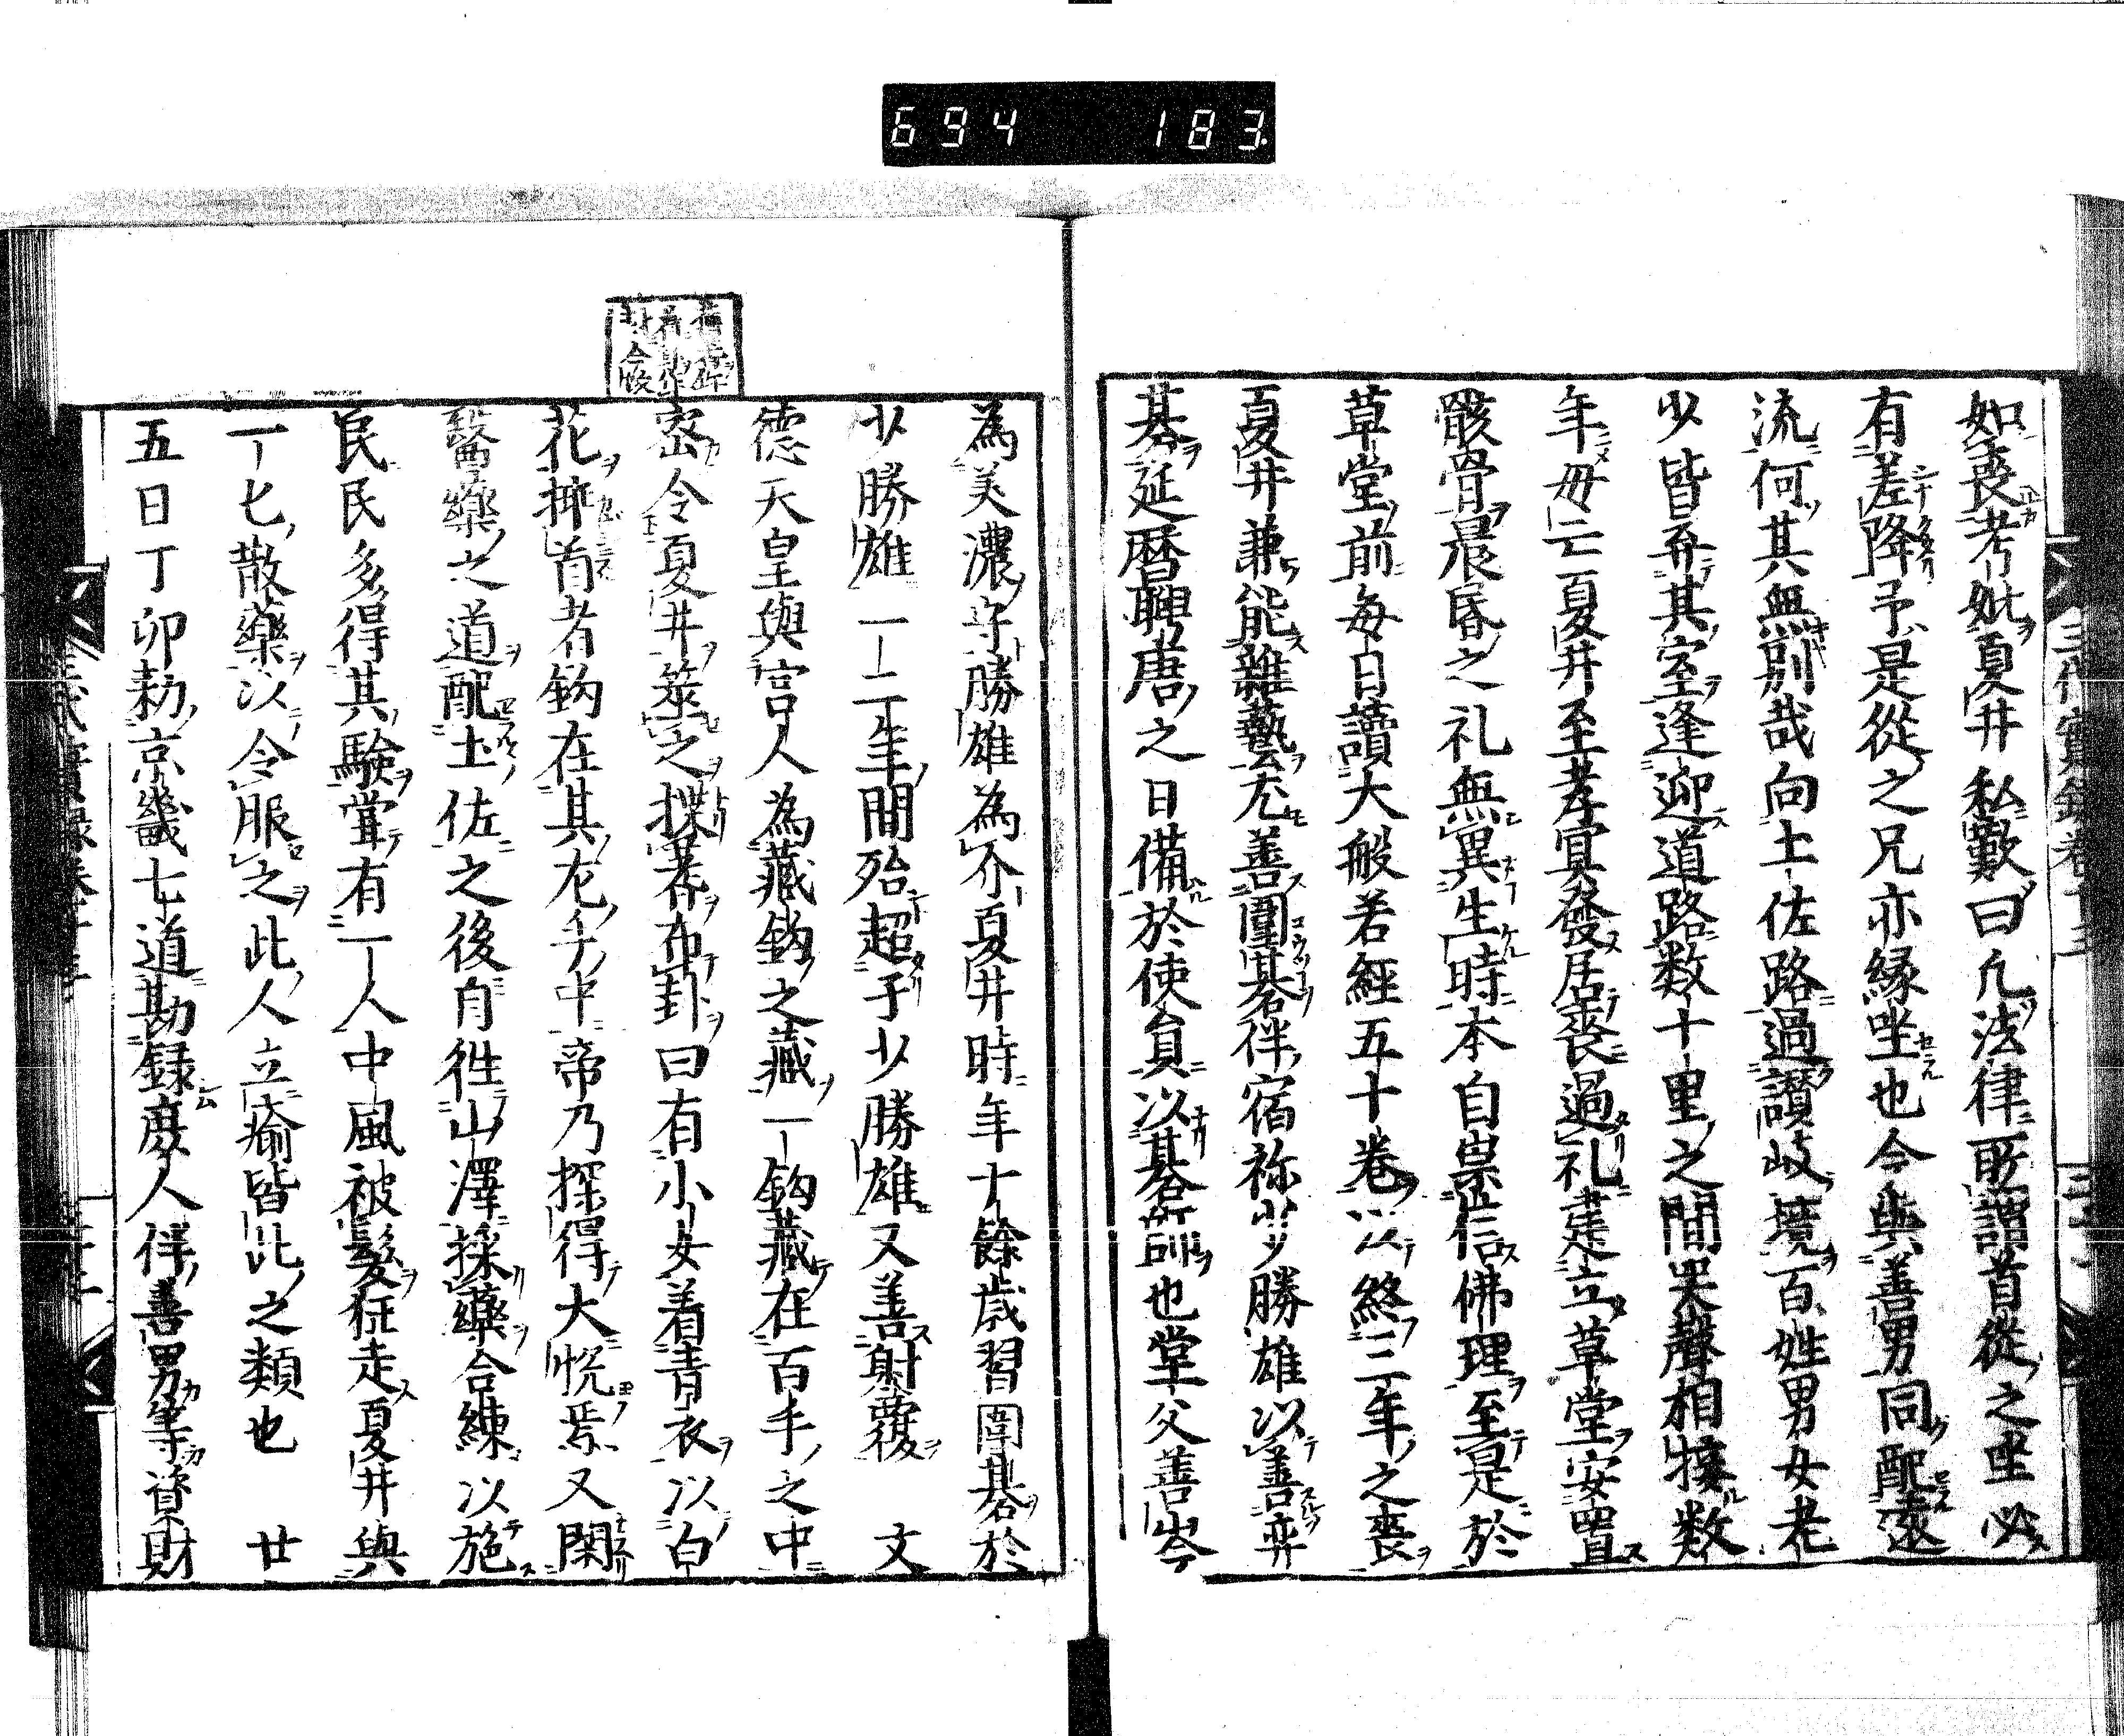 694 183
如喪考妣夏井私歎曰凡法律所謂首從之坐必
有差降予是從之兄亦縁坐也今與善男同配遠
流何其無別哉向土佐路過讃岐境百姓男女老
少皆弃其室逢迎道路数十里之間哭聲相接数
年毋亡夏井至孝冥發居喪過礼建立草堂安置
骸骨晨昏之礼無異生時本自崇信佛理至是於
草堂前每日讀大般若經五十巻以終三年之喪
夏井兼能雜藝尤善圍碁伴宿祢少勝雄以善弈
碁延暦聘唐之日備於使員以碁師也堂父善岑
為美濃守勝雄為介夏井時年十餘歳習圍碁於
少勝雄一二年間殆超于少勝雄又善射覆 文
德天皇與宮人為藏鈎之藏一鈎藏在百手之中
密令夏井筮之揲蓍布卦曰有小女着青衣以白
花挿首者鈎在其左手中帝乃探得大恱焉又閑
醫藥之道配土佐之後自徃山澤採藥合練以施
民民多得其驗甞有一人中風被髮狂走夏井與
一匕散藥以令服之此人立瘉皆此之類也 廿
五日丁卯勅京畿七道勘録庶人伴善男等資財